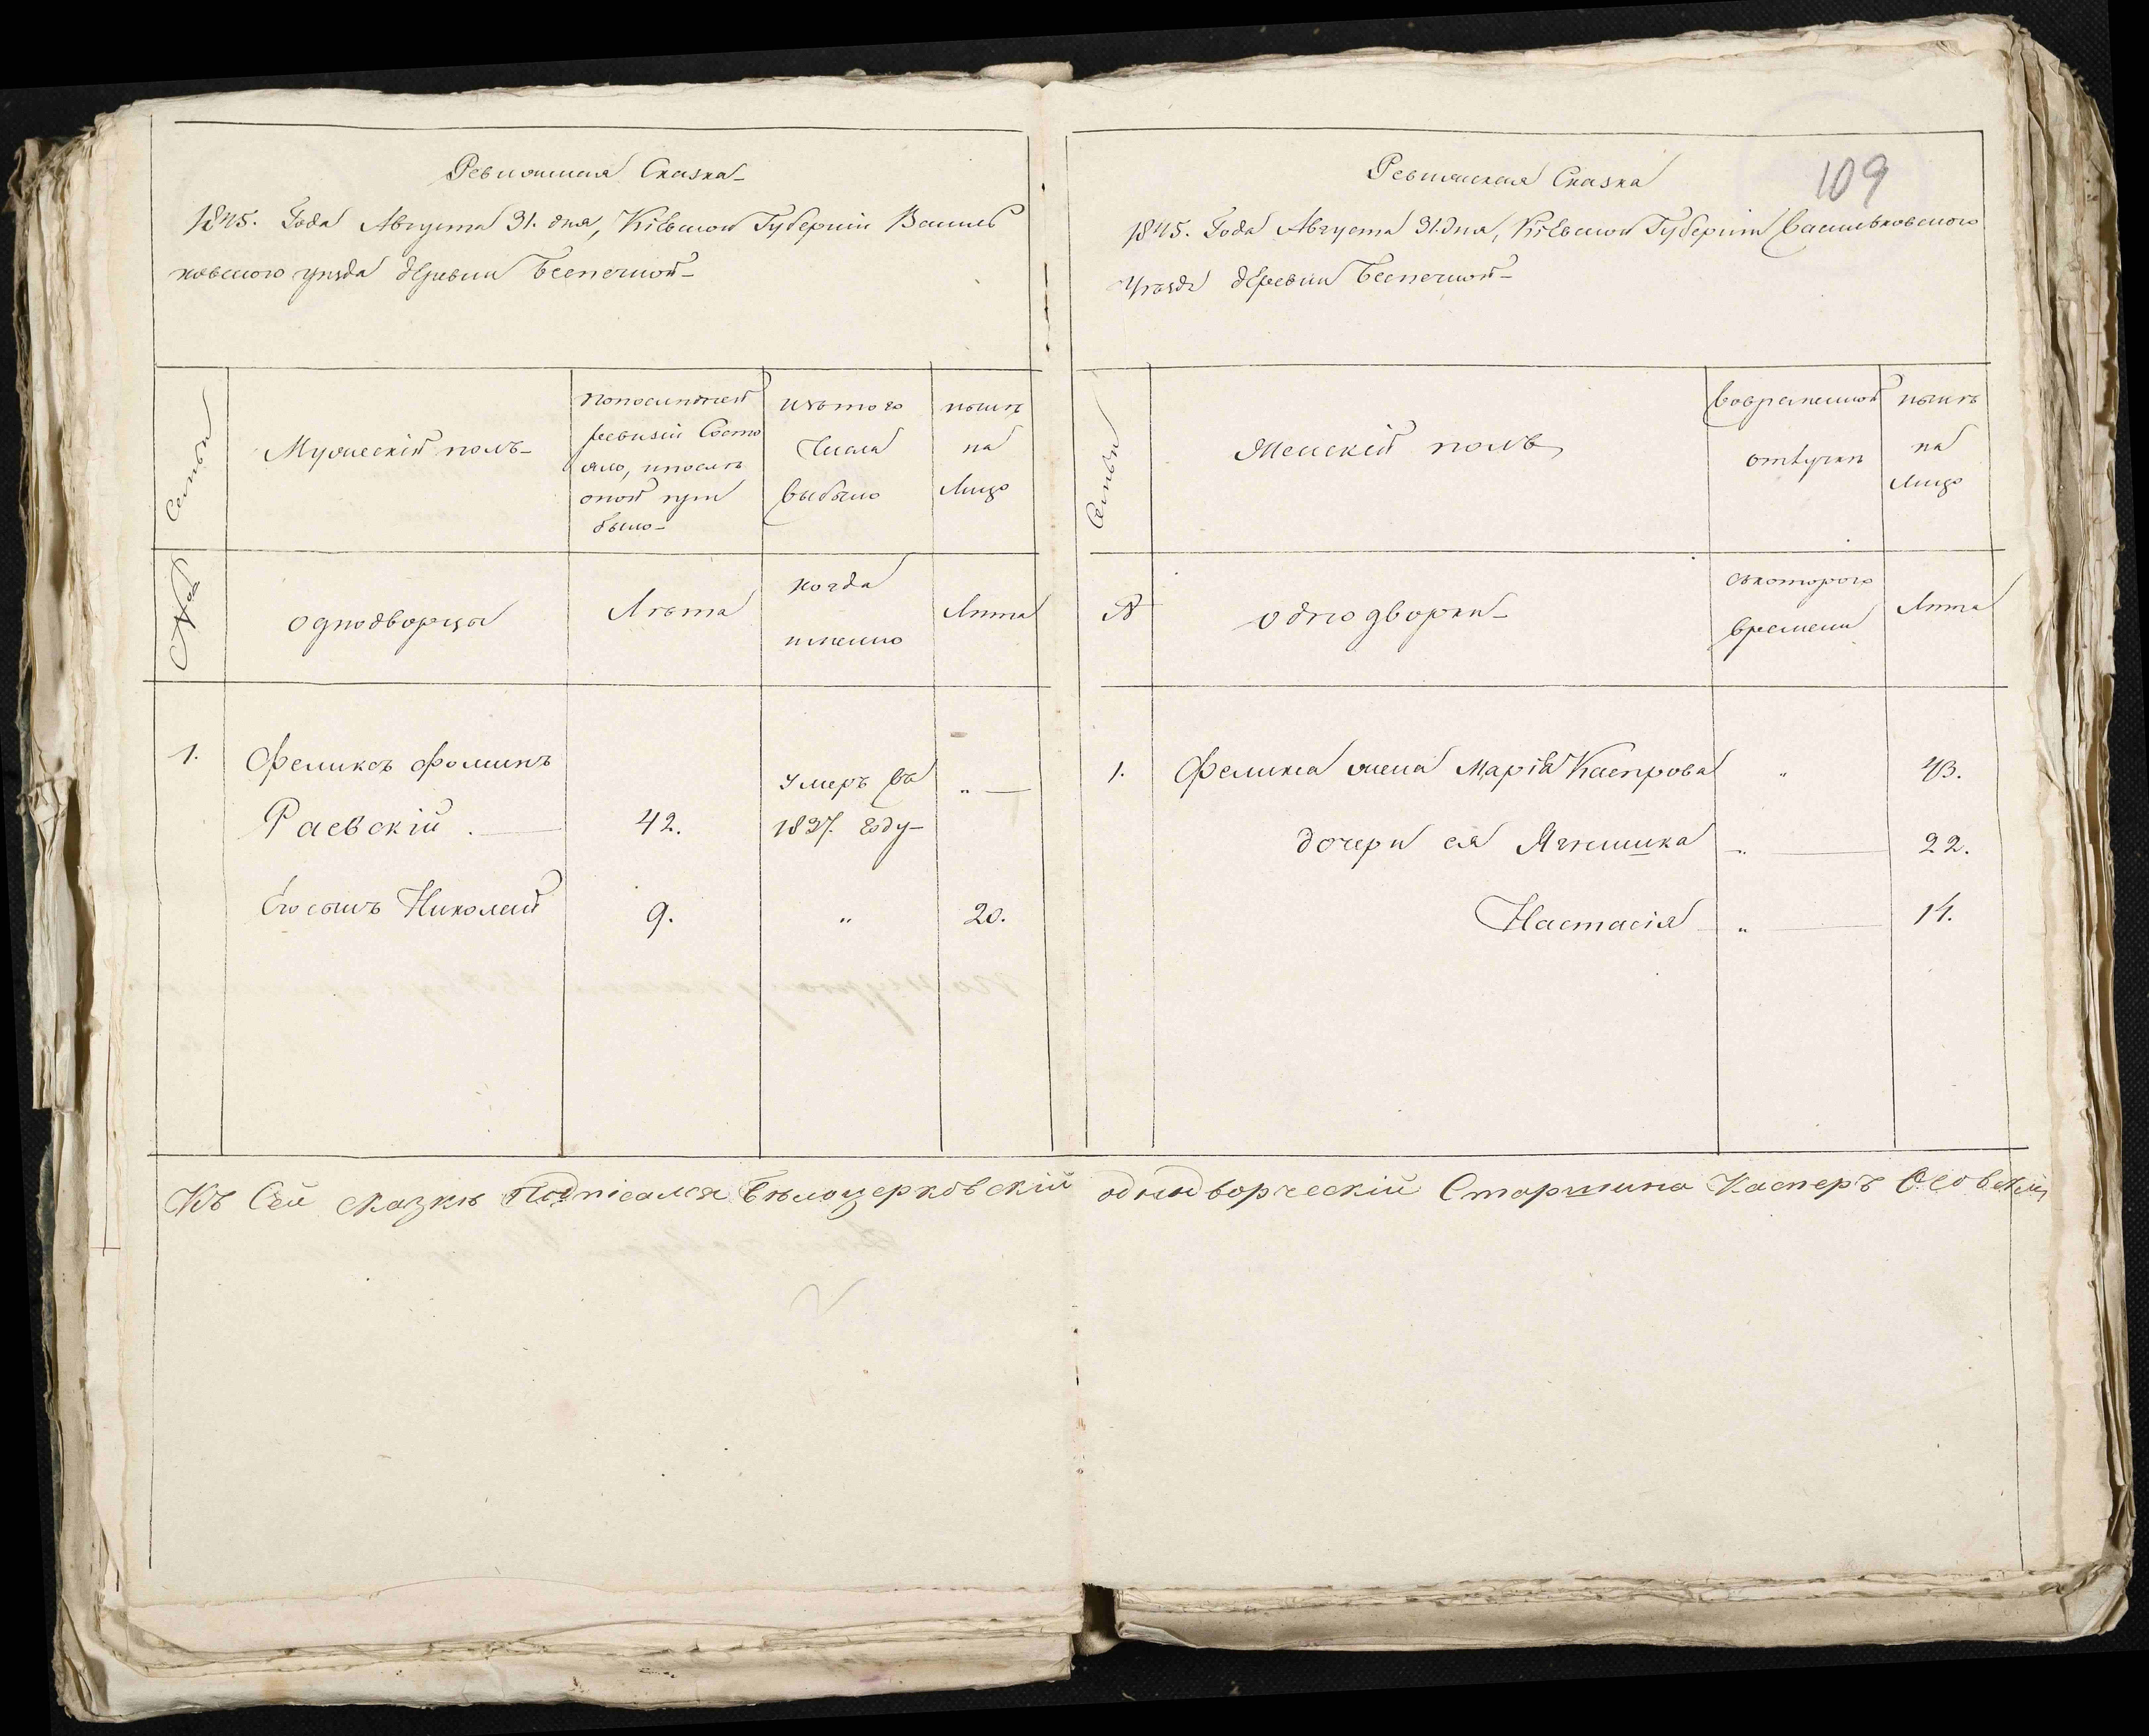 Ревизская Сказка
1845. Года Августа 31. дня, Кіевской Губерніи Василь
ковского уезда деревни Беспечной
Семьи
Мужескій полъ
По последней
ревизіи Состо
яло, и после
оной при
было
Изъ того
Числа
выбыло
ныне
на
Лицо
№
однодворцы
Лета
когда
именно
Лета
1.
Феликсъ Фоминъ
Раевскій
42.
умеръ въ
1837. году
„
Его сынъ Николай
9.
„
20.
109
Ревизская Сказка
1845. Года Августа 31. дня, Кіевской Губерніи Васильковского
Уезда деревни Беспечной
Семьи
Женскій полъ
во временной
отлучке
ныне
на
Лицо
№
однодворки
съ которого
времени
Лета
1.
Феликса жена Марія Каспрова
„
43.
дочери ея Ягнишка
„
22.
Настасія
„
14.
Къ Сей сказкѣ Подпісался Бѣлоцерковскій однодворческій Старшина Касперъ Осовскій